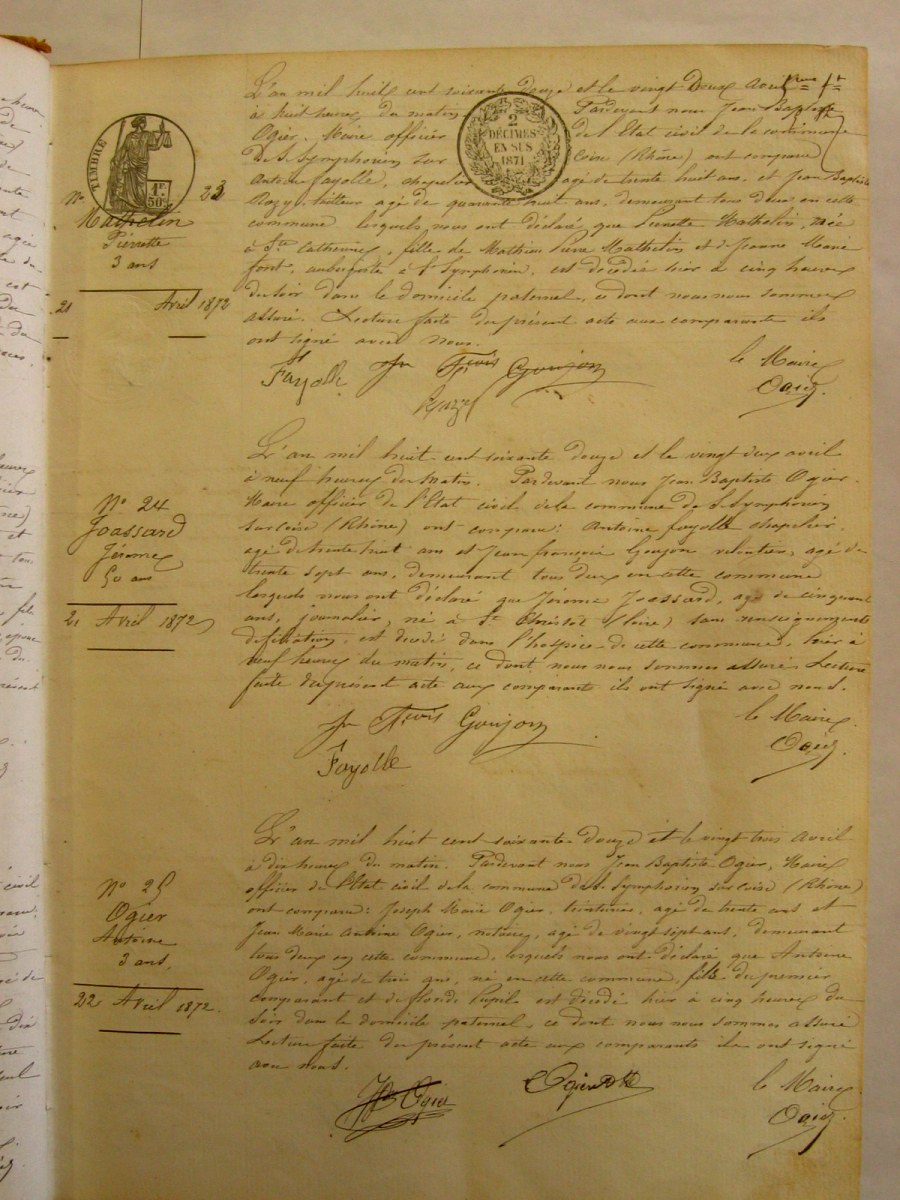 L'an mil huit cent soixante douze et le vingt deux avril
à huit heures du matin Pardevant nous Jean Baptiste
Ogier, Maire officier de l'Etat civil de la commune
De S. Symphorien sur Coise (Rhône) ont comparu
Antoine Fayolle, chapelier agé de trente huit ans, et Jean Baptiste
agé de quarante huit ans, demeurant tous deux en cette
commune lesquels nous ont déclaré que Pierrette Mathelin, née
à Ste Catherine, fille de Mathieu Pierre Mathelin et de Jeanne Marie
font, aubergiste à St Symphorien, est décédée hier à cinq heures
du soir dans le domicile paternel, ce dont nous nous sommes
assuré. Lecture faite du présent acte aux comparants ils
ont signé avec nous.
Fayolle Jn Fçois Goujon le Maire
Ogier
TIMBRE
1F 50c
2
DÉCIMES
EN SUS
1871
N° 23
Mathelin
Pierrette
3 ans
21 Avril 1872
L'an mil huit cent soixante douze et le vingt deux avril
à neuf heures du matin. Pardevant nous Jean Baptiste Ogier
Maire officier de l'Etat civil de la commune de S. Symphorien
sur Coise (Rhône) ont comparu: Antoine Fayolle chapelier
agé de trente huit ans et Jean françois Goujon agé de
trente sept ans, demeurant tous deux en cette commune
lesquels nous ont déclaré que Jérome Joassard, agé de cinquante
ans, journalier, né à St (Loire) sans renseignements
de filiation, est décédé dans l'hospice de cette commune, hier à
neuf heures du matin, ce dont nous nous sommes assuré. Lecture
faite du présent acte aux comparants ils ont signé avec nous.
Jn Fçois Goujon le Maire
Fayolle Ogier
N° 24
Joassard
Jérome
50 ans
21 Avril 1872
L'an mil huit cent soixante douze et le vingt trois avril
à dix heures du matin. Pardevant nous Jean Baptiste Ogier, Maire
officier de l'Etat civil de la commune de S. Symphorien sur Coise (Rhône)
ont comparu: Joseph Marie Ogier, teinturier, agé de trente ans et
Jean Marie Antoine Ogier, notaire, agé de vingt sept ans, demeurant
tous deux en cette commune, lesquels nous ont déclaré que Antoine
Ogier, agé de trois ans, né en cette commune, fils du premier
comparant et de est décédé hier à cinq heures du
soir dans le domicile paternel, ce dont nous nous sommes assuré
Lecture faite du présent acte aux comparants ils ont signé
avec nous.
Ogier Ogier le Maire
Ogier
N° 25
Ogier
Antoine
3 ans.
22 Avril 1872.